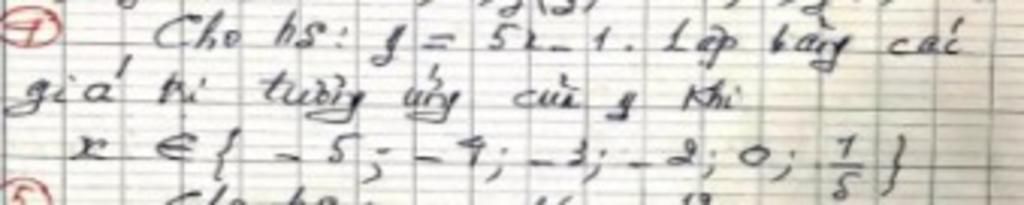 4 Cho hs: y = 5x - 1. Lập bảng các
giá trị tương ứng của y khi
x ∈ { - 5; - 4; - 3; - 2; 0; 1/5 }
5